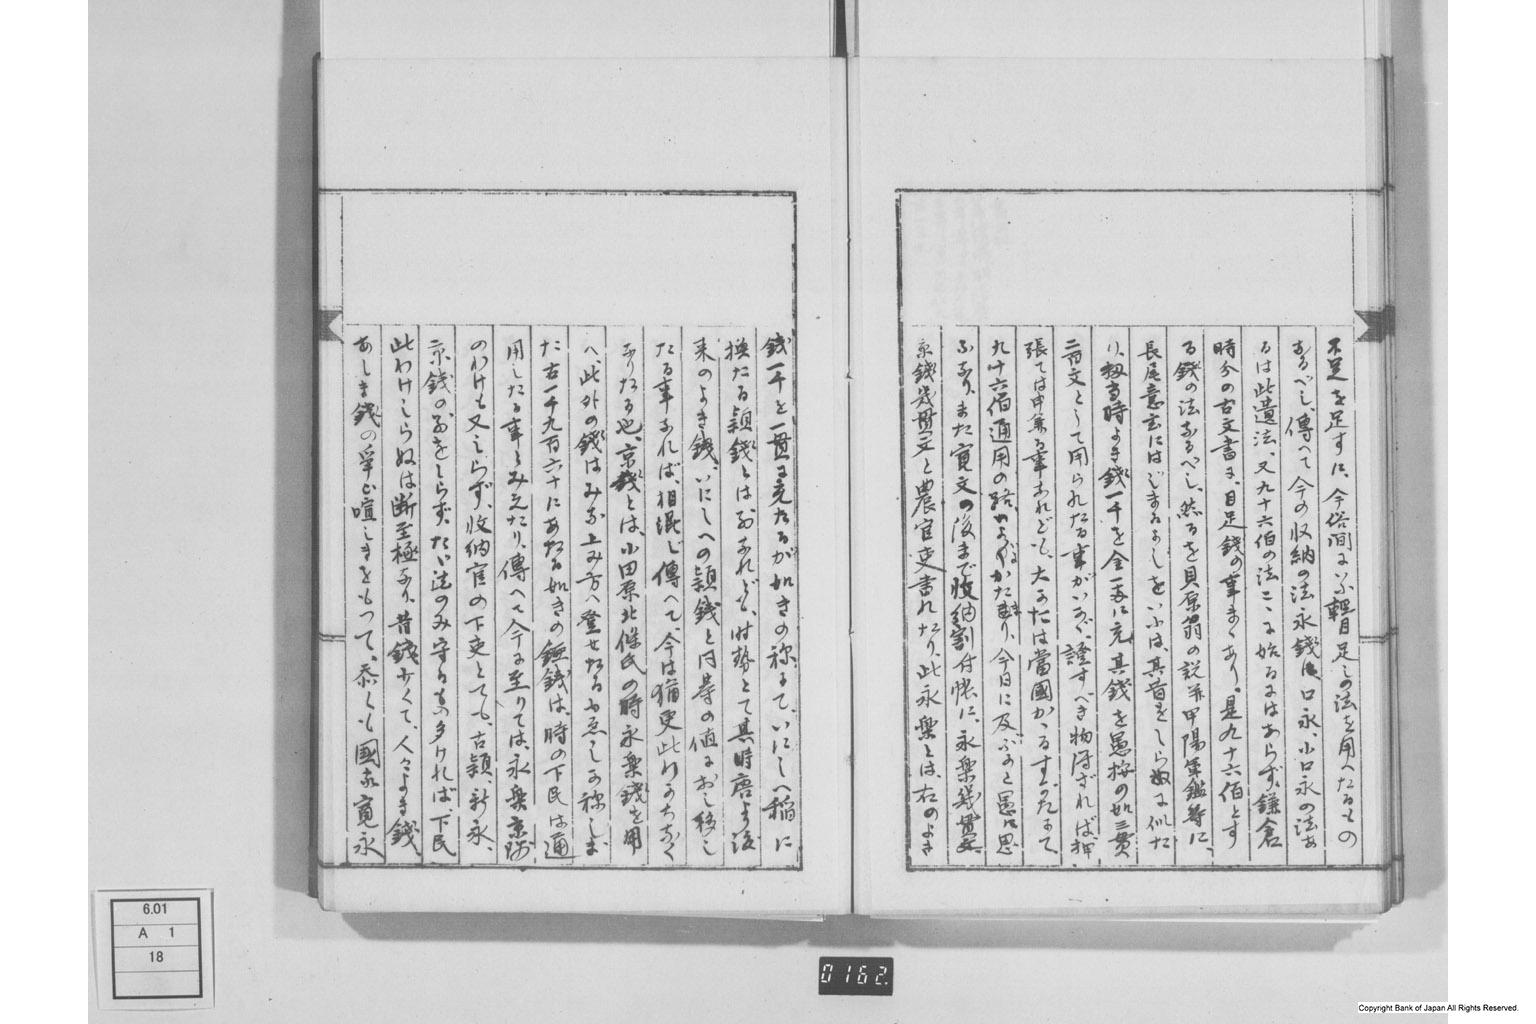 不足を足すに、今俗間に不軽目足しの法を用へたるもの
あるべし、傳へて今の収納の法永錢後口永、小口永の法あ
るは此遺法、又九十六佰の法こゝに始るにはあらず、鎌倉
時分の古文書に、目足錢の事まゝあり、是九十六佰とす
る錢の法なるべし、然るを貝原翁の説并甲陽軍鑑等に、
長尾意玄にはじまるよしをいふは、其昔をしらぬに似た
り、扨當時よき錢一千を金一両に充、其錢を愚按の如三貫
二百文として用られたる事がいかゞ、證すべき物得ざれば押
張ては申兼る事あれども、大かたは當國かゝるすがたにて
九十六佰通用の路 かた 今日に及ぶかと愚は思
ふなり、また寛文の後まで收納割付帳に、永樂幾貫文
京錢幾貫文と農官吏書れたり、此永樂とは、右のよき
錢一千を一貫に充たるが如きの称にて、いにしへ稲に
換たる穎錢とは別なれども、時勢とて其時唐より後
来のよき錢、いにしへの穎錢と同等の値におし移し
たる事なれば、相混じ傳へて、今は猶更此わかちなく
なりたる也、京錢とは、小田原北條氏の時永樂錢を用
へ此外の錢はみな上み方へ登せたるゆゑしか称しま
た右一千九百六十にあたる如きの鐚錢は、時の下民は通
用したる事とみえたり、傳へて今に至りては、永樂京錢
のわけも又しらず、收納官の下吏とても、古穎、新永、
京錢の別をしらず、たゞ法のみ守るもの多ければ、下民
此わけしらぬは断至極なり、昔錢少くて、人々よき錢
あしき錢の爭ひ喧しきをもつて、忝くも國家寛永
6.01
A 1
18
0162
Copyright Bank of Japan All Rights Reserved.